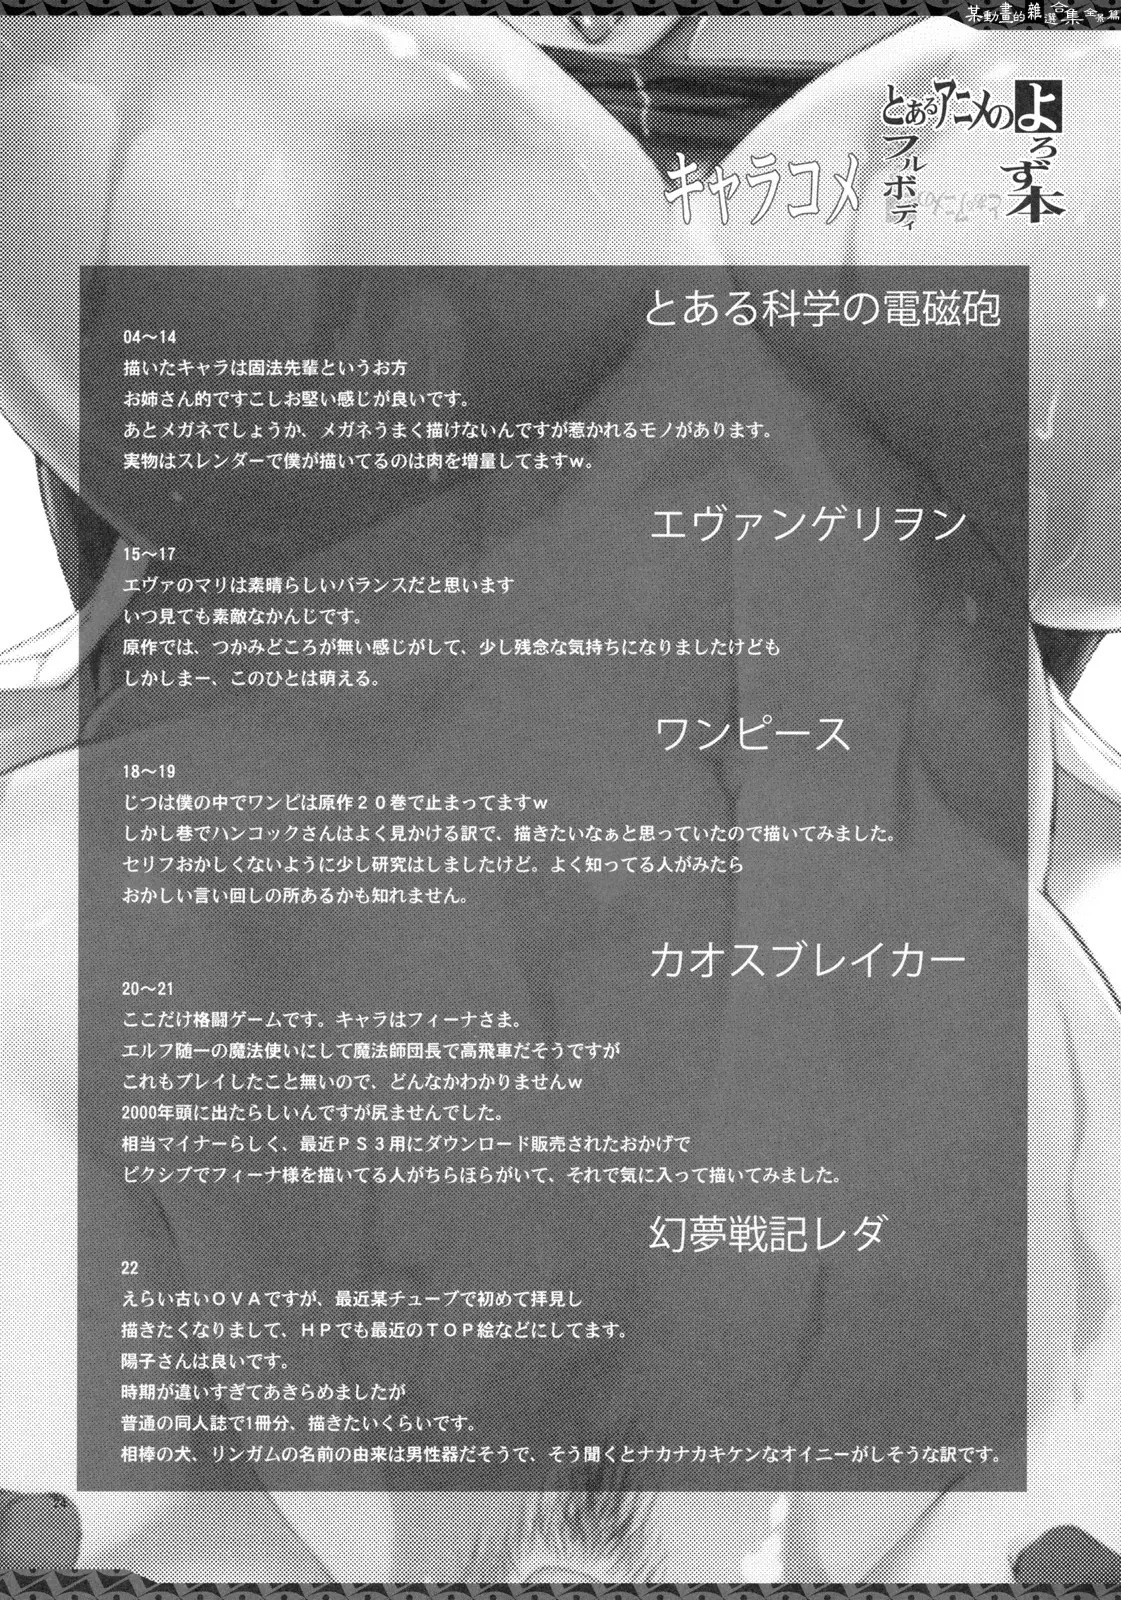 某動畫的雜選合集全景篇
とあるアニメの
よろず本
フルボディ
キャラコメ
とある科学の電磁砲
04～14
描いたキャラは固法先輩というお方
お姉さん的ですこしお堅い感じが良いです。
あとメガネでしょうか、メガネうまく描けないんですが惹かれるモノがあります。
実物はスレンダーで僕が描いてるのは肉を増量してますｗ。
エヴァンゲリヲン
15～17
エヴァのマリは素晴らしいバランスだと思います
いつ見ても素敵なかんじです。
原作では、つかみどころが無い感じがして、少し残念な気持ちになりましたけども
しかしまー、このひとは萌える。
ワンピース
18～19
じつは僕の中でワンピは原作２０巻で止まってますｗ
しかし巷でハンコックさんはよく見かける訳で、描きたいなぁと思っていたので描いてみました。
セリフおかしくないように少し研究はしましたけど。よく知ってる人がみたら
おかしい言い回しの所あるかも知れません。
カオスブレイカー
20～21
ここだけ格闘ゲームです。キャラはフィーナさま。
エルフ随一の魔法使いにして魔法師団長で高飛車だそうですが
これもプレイしたこと無いので、どんなかわかりませんｗ
2000年頭に出たらしいんですが尻ませんでした。
相当マイナーらしく、最近ＰＳ３用にダウンロード販売されたおかげで
ピクシブでフィーナ様を描いてる人がちらほらがいて、それで気に入って描いてみました。
幻夢戦記レダ
22
えらい古いＯＶＡですが、最近某チューブで初めて拝見し
描きたくなりまして、ＨＰでも最近のＴＯＰ絵などにしてます。
陽子さんは良いです。
時期が違いすぎてあきらめましたが
普通の同人誌で1冊分、描きたいくらいです。
相棒の犬、リンガムの名前の由来は男性器だそうで、そう聞くとナカナカキケンなオイニーがしそうな訳です。
24